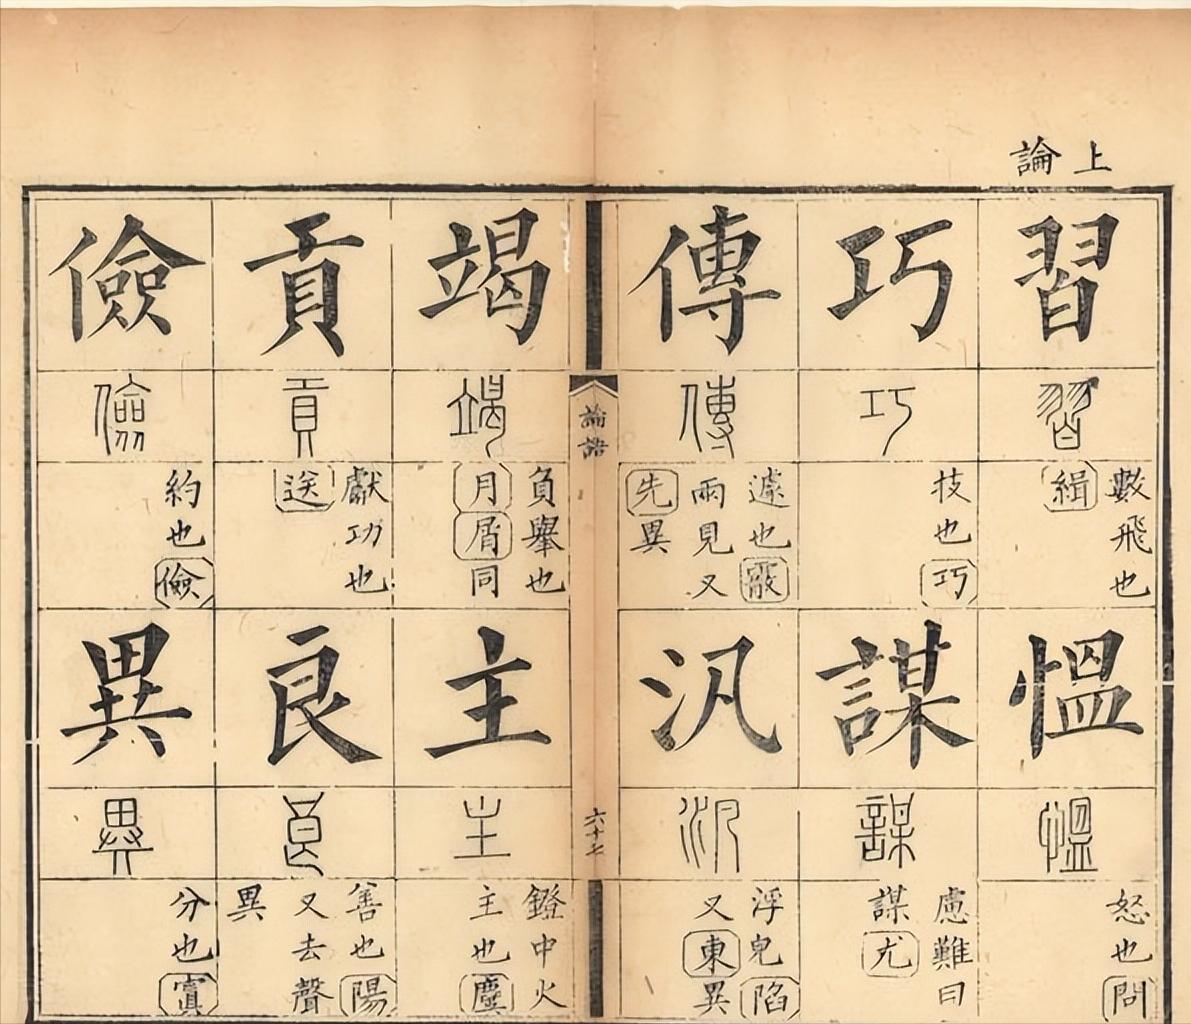 上論
習
習
數飛也
緝
慍
慍
怒也問
巧
巧
技也巧
謀
謀
慮難曰
謀尤
傳
傳
遽也霰
兩見又
先異
汎
汎
浮皃陷
又東異
論語
六十七
竭
竭
負舉也
月屑同
主
主
鐙中火
主也麌
貢
貢
獻功也
送
良
良
善也陽
又去聲
異
儉
儉
約也儉
異
異
分也寘